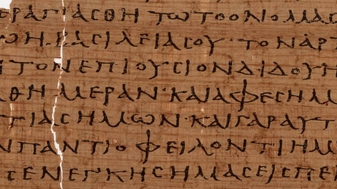 ΕΡΑΓΙΑΣΘΗΤΩΤΟΟΝΟΜΑΣ
ΩΗΒΑΣΙΛΕΙΑΣΟΥ·ΤΟΝΑΡΤ
ΙΤΟΝΕΠΙΟΥΣΙΟΝΔΙΔΟΥΗ
ΘΗΜΕΡΑΝ·ΚΑΙΑΦΕΣΗΜ
ΤΙΑΣΗΜΩΝ·ΚΑΙΓΑΡΑΥΤ
ΝΠΑΝΤΙΟΦΕΙΛΟΝΤΙΗΜ
ΣΕΝΕΓΚΗΣΗΜΑΣΕΙΣΠΕΙ